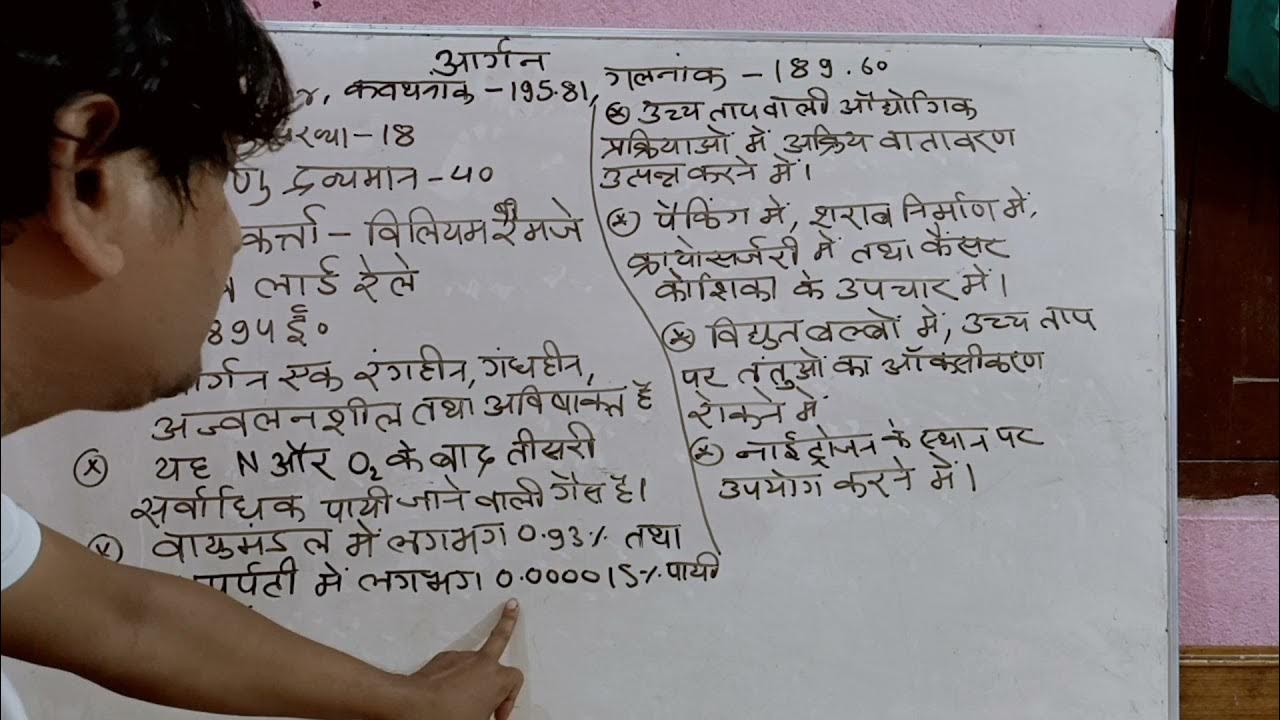 आर्गन
, क्वथनांक - 195.81, गलनांक - 189.60
संख्या - 18
द्रव्यमान - 40
कर्त्ता - विलियम रैमजे
लार्ड रेले
894 ई०
एक रंगहीन, गंधहीन,
अज्वलनशील तथा अविषाक्त है
(x) यह N और O₂ के बाद तीसरी
सर्वाधिक पायी जाने वाली गैस है।
(x) वायुमंडल में लगभग 0.93% तथा
पर्पटी में लगभग 0.000015% पायी
(x) उच्च ताप वाली औद्योगिक
प्रक्रियाओं में अक्रिय वातावरण
उत्पन्न करने में।
(x) पैकिंग में, शराब निर्माण में,
क्रायोसर्जरी में तथा कैंसर
कोशिका के उपचार में।
(x) विद्युत बल्बों में, उच्च ताप
पर तंतुओं का ऑक्सीकरण
रोकने में
(x) नाईट्रोजन के स्थान पर
उपयोग करने में।